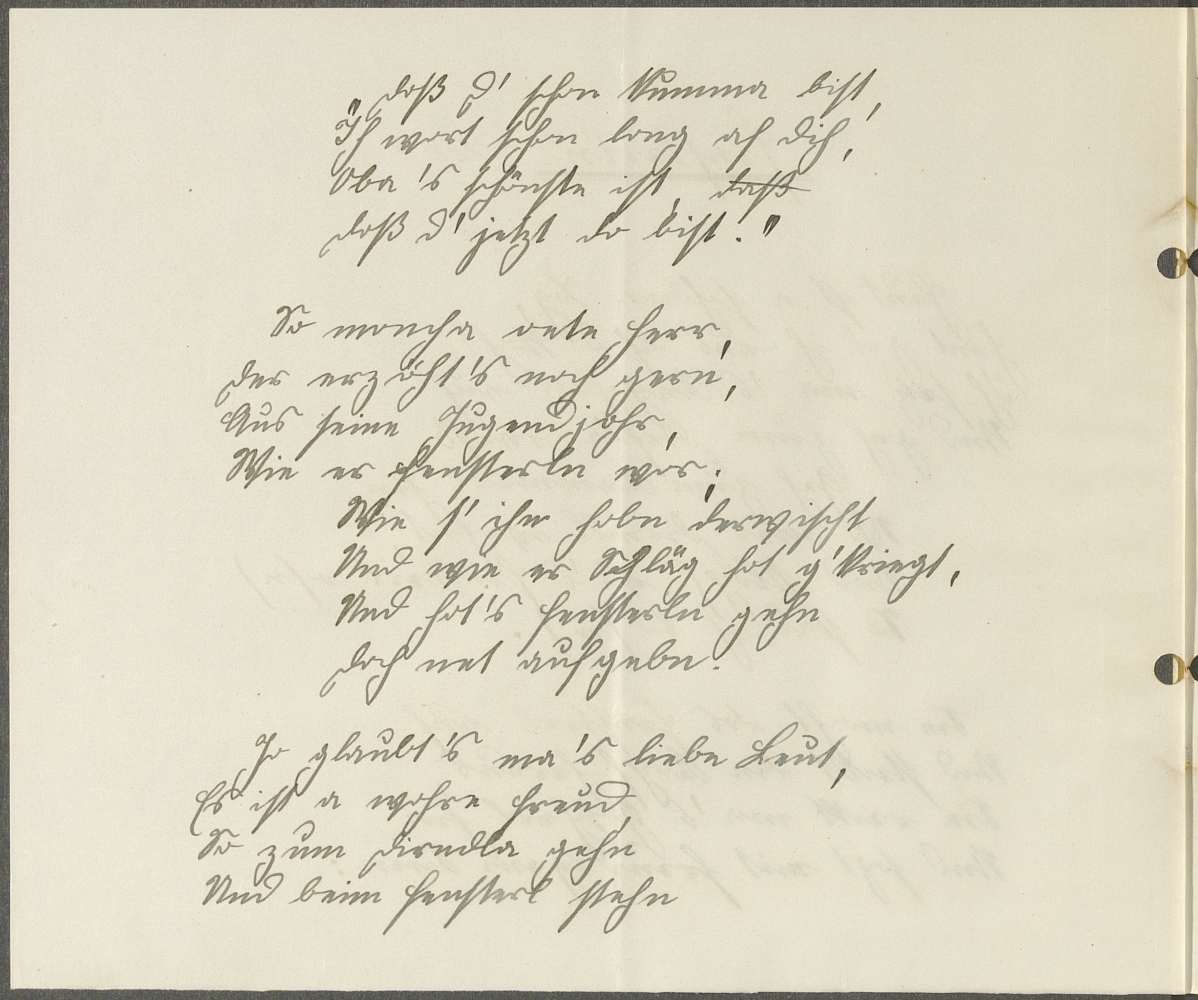 „Doß d' schon kumma bist,
Ih wort schon long af dih,
Oba 's schönste ist, daß
doß d' jetzt do bist."
So moncha oete Herr,
Der erzöht's noch gern,
Aus seine Jugendjohr,
Wie er fensterln wor;
Wie s' ihm hobn derwischt
Und wie er Schläg hot g'kriegt,
Und hot's Fensterln gehn
Doch net aufgebn.
Jo glaubt's ma's liebe Leut,
Es ist a wohre Freud,
So zum Dirndla gehn
Und beim Fensterl stehn